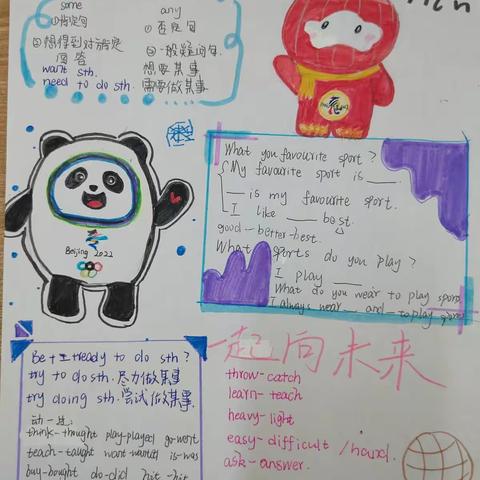 some any
①肯定句 ①否定句
②想得到对方肯定 ②一般疑问句
回答
want sth. 想要某事
need to do sth. 需要做某事
Beijing 2022
What you favourite sport?
My favourite sport is ___.
___ is my favourite sport.
I like ___ best.
good-better-best.
What sports do you play?
I play ___
What do you wear to play sports
I always wear ___ and ___ to play sports
一起向未来
throw-catch
learn-teach
heavy-light
easy-difficult/hard.
ask-answer.
Be+ready to do sth?
try to do sth. 尽力做某事
try doing sth. 尝试做某事.
动一过:
think-thought play-played go-went
teach-taught want-wanted is-was
buy-bought do-did hit-hit